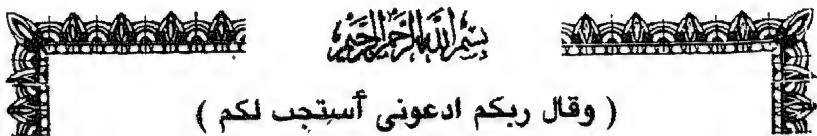 بسم الله الرحمن الرحيم
( وقال ربكم ادعونى أستجب لكم )